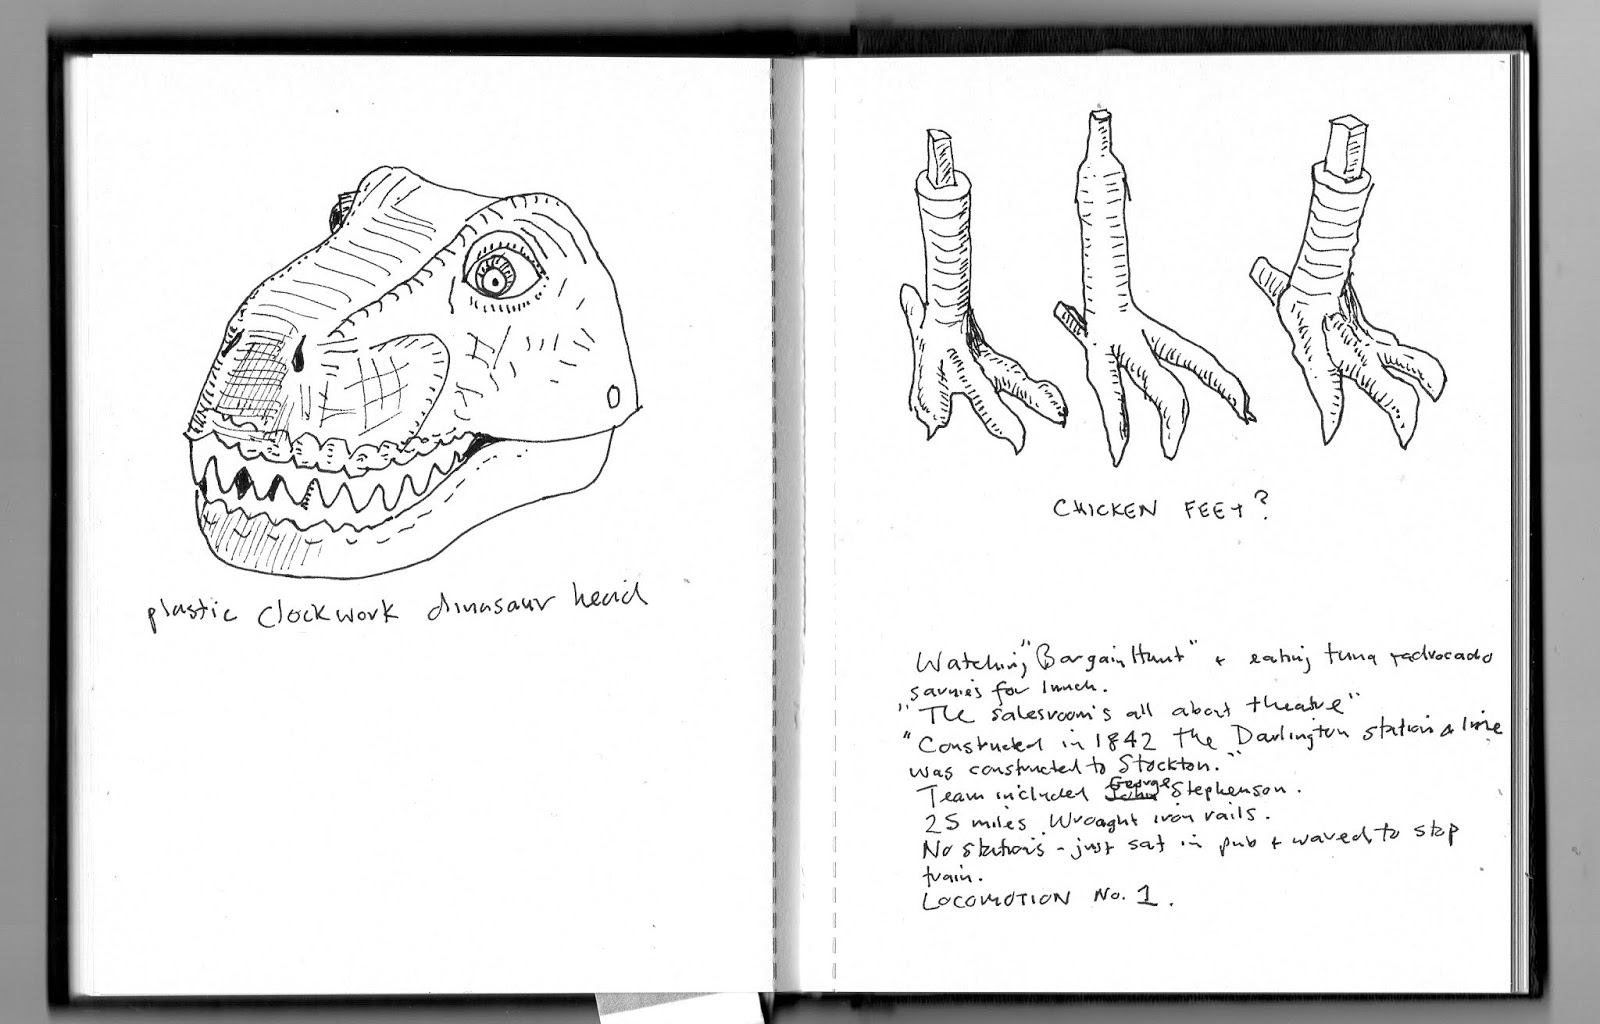 plastic clockwork dinosaur head
CHICKEN FEET?
Watching "Bargain Hunt" + eating tuna + advocado
sarnies for lunch.
"The salesroom's all about theatre"
"Constructed in 1842 The Darlington station & line
was constructed to Stockton."
Team included John George Stephenson.
25 miles. Wrought iron rails.
No stations - just sat in pub + waved to stop
train.
LOCOMOTION No. 1.